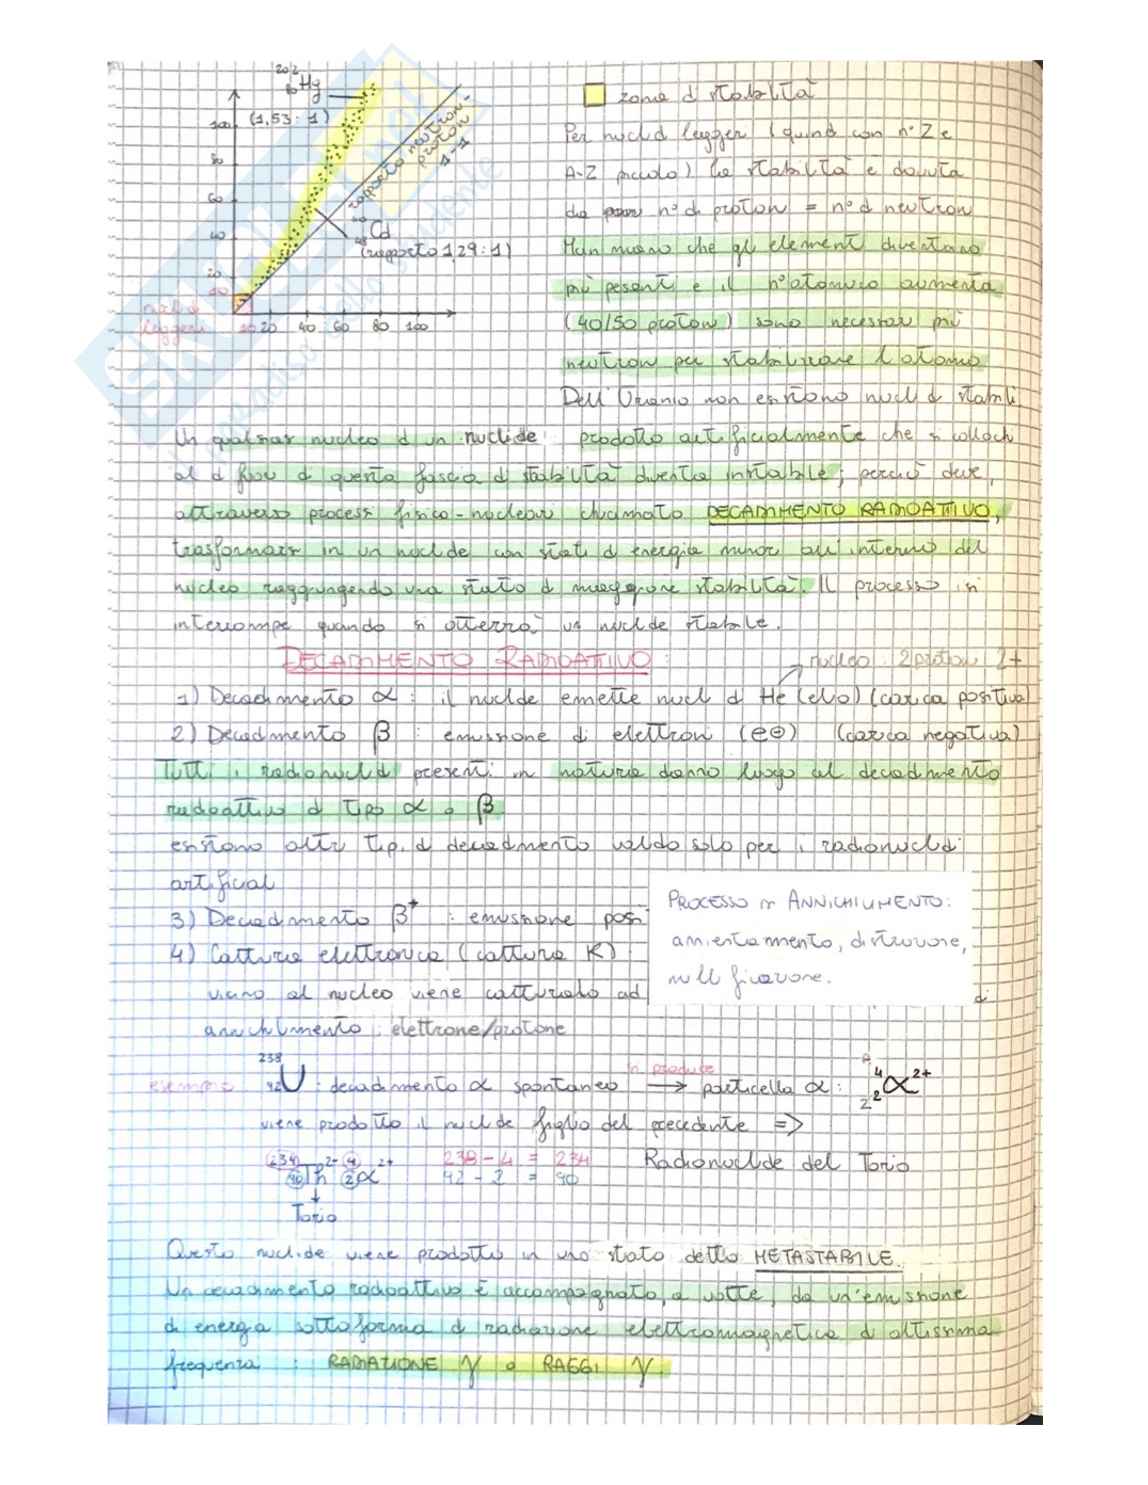 202
80 Hg
(1,53 : 1)
100
80
60
40
20
rapporto neutroni-
protoni
1-1
Cd
48
(rapporto 1,29 : 1)
nuclidi
leggeri
20 20 40 60 80 100
zona di stabilità
Per nuclidi leggeri (quindi con n° Z e
A-Z piccolo) la stabilità è dovuta
da n° di protoni = n° di neutroni
Man mano che gli elementi diventano
più pesanti e il n° atomico aumenta
(40/50 protoni) sono necessari più
neutroni per stabilizzare l'atomo
Dell'Uranio non esistono nuclidi stabili
Un qualsiasi nucleo di un nuclide prodotto artificialmente che si collochi
al di fuori di questa fascia di stabilità diventa instabile; perciò deve,
attraverso processi fisico-nucleari chiamato DECADIMENTO RADIOATTIVO,
trasformarsi in un nuclide con stati di energia minori all'interno del
nucleo raggiungendo uno stato di maggiore stabilità. Il processo si
interrompe quando si otterrà un nuclide stabile.
DECADIMENTO RADIOATTIVO:
nucleo: 2 protoni 2+
1) Decadimento α : il nuclide emette nuclei di He (elio) (carica positiva)
2) Decadimento β : emissione di elettroni (e⊖) (carica negativa)
Tutti i radionuclidi presenti in natura danno luogo al decadimento
radioattivo di tipo α o β
esistono altri tipi di decadimento valido solo per i radionuclidi
artificiali
3) Decadimento β⁺ : emissione posi
4) Cattura elettronica (cattura K)
vicino al nucleo viene catturato ad
di
annichilimento : elettrone/protone
PROCESSO DI ANNICHILIMENTO:
annientamento, distruzione,
nullificazione.
esempio 238 92 U : decadimento α spontaneo → particella α: A 4 Z 2 α 2+
si produce
viene prodotto il nuclide figlio del precedente =>
234 90 Th 2- 4 2 α 2+ 238 - 4 = 234 Radionuclide del Torio
92 - 2 = 90
Torio
Questo nuclide viene prodotto in uno stato detto METASTABILE.
Un decadimento radioattivo è accompagnato, a volte, da un'emissione
di energia sottoforma di radiazione elettromagnetica di altissima
frequenza : RADIAZIONE γ o RAGGI γ.